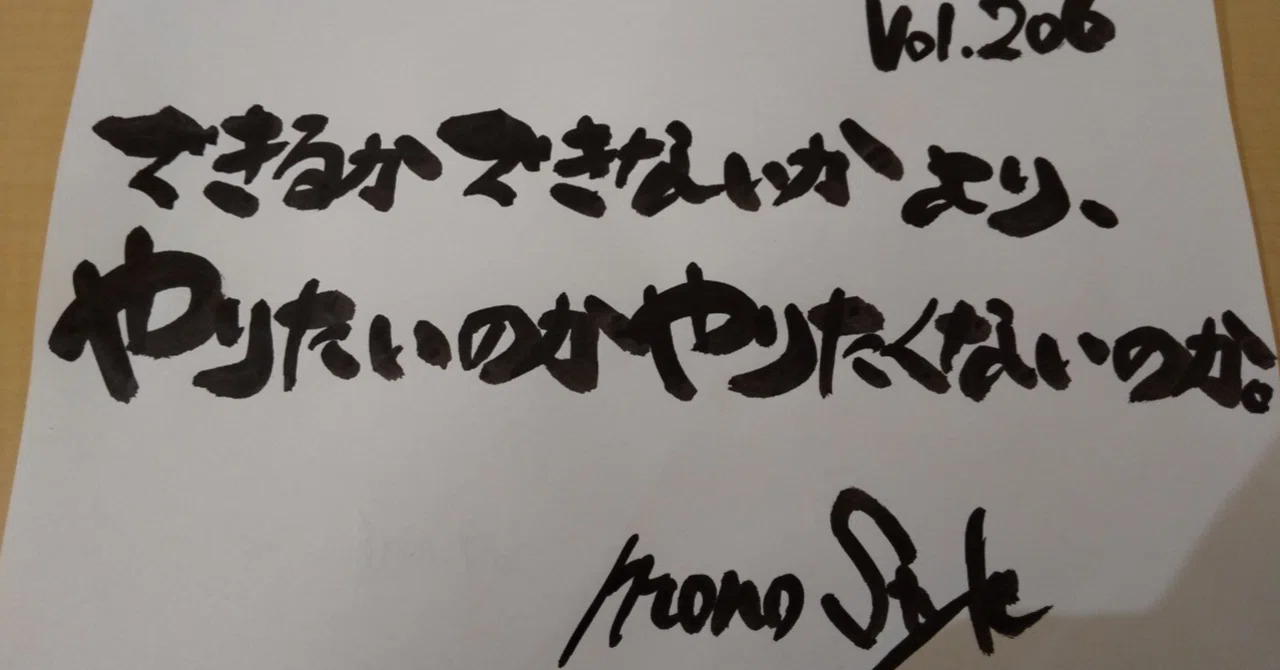 Vol.206
できるかできないかより、
やりたいのかやりたくないのか。
mono Style